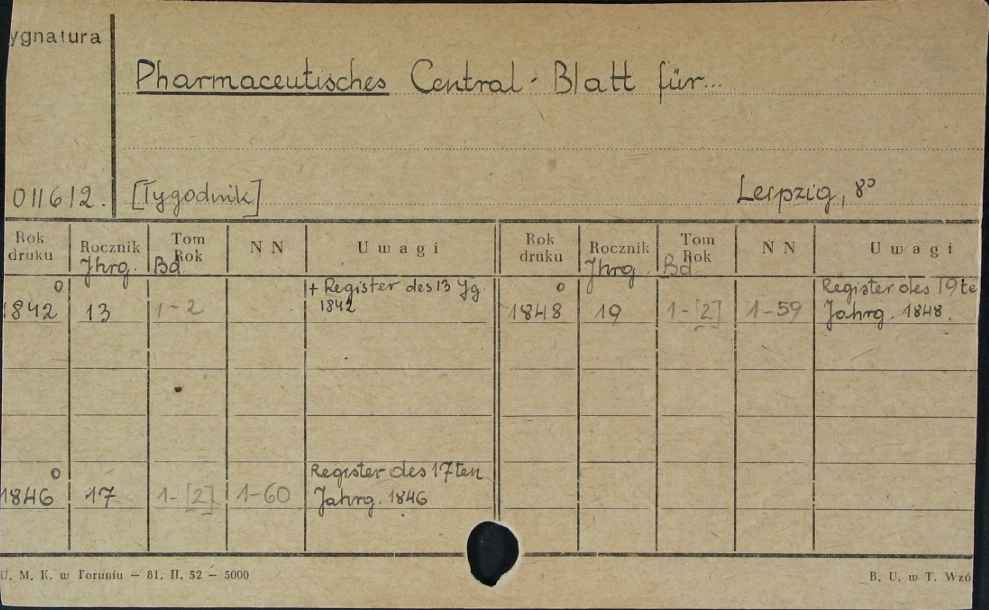 ygnatura
Pharmaceutisches Central-Blatt für...
011612. [Tygodnik] Leipzig, 8°
Rok druku Rocznik Jhrg. Tom Rok Bd NN Uwagi Rok druku Rocznik Jhrg. Tom Rok Bd NN Uwagi
o + Register des 13 Jg o Register des 19te
1842 13 1-2 1842 1848 19 1-[2] 1-59 Jahrg. 1848.
o Register des 17ten
1846 17 1-[2] 1-60 Jahrg. 1846
U. M. K. w Toruniu — 81. II. 52 — 5000 B. U. w T. Wzó